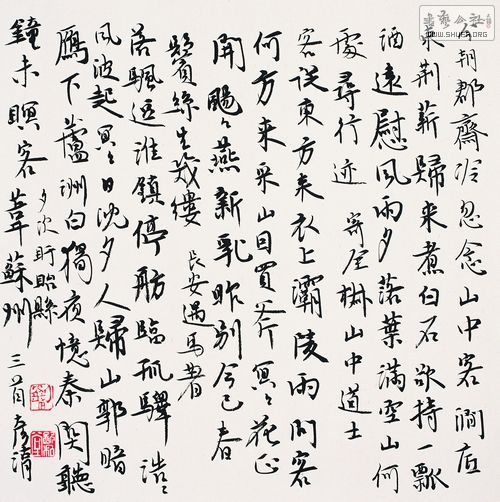 今朝郡齋冷忽念山中客澗底
束荆薪歸来煮白石欲持一瓢
酒遠慰風雨夕落葉滿空山何
處尋行迹 寄全椒山中道士
客從東方来衣上灞陵雨問客
何方来采山因買斧冥々花正
開颺々燕新乳昨别今已春
鬢絲生幾縷 長安遇馮著
落颿逗淮鎮停舫臨孤驛浩々
風波起冥々日沈夕人歸山郭暗
鴈下蘆洲白獨夜憶秦関聽
鐘未瞑客 夕次盱眙縣
韋蘇州三首 彦清
WWW.SHUFA.ORG